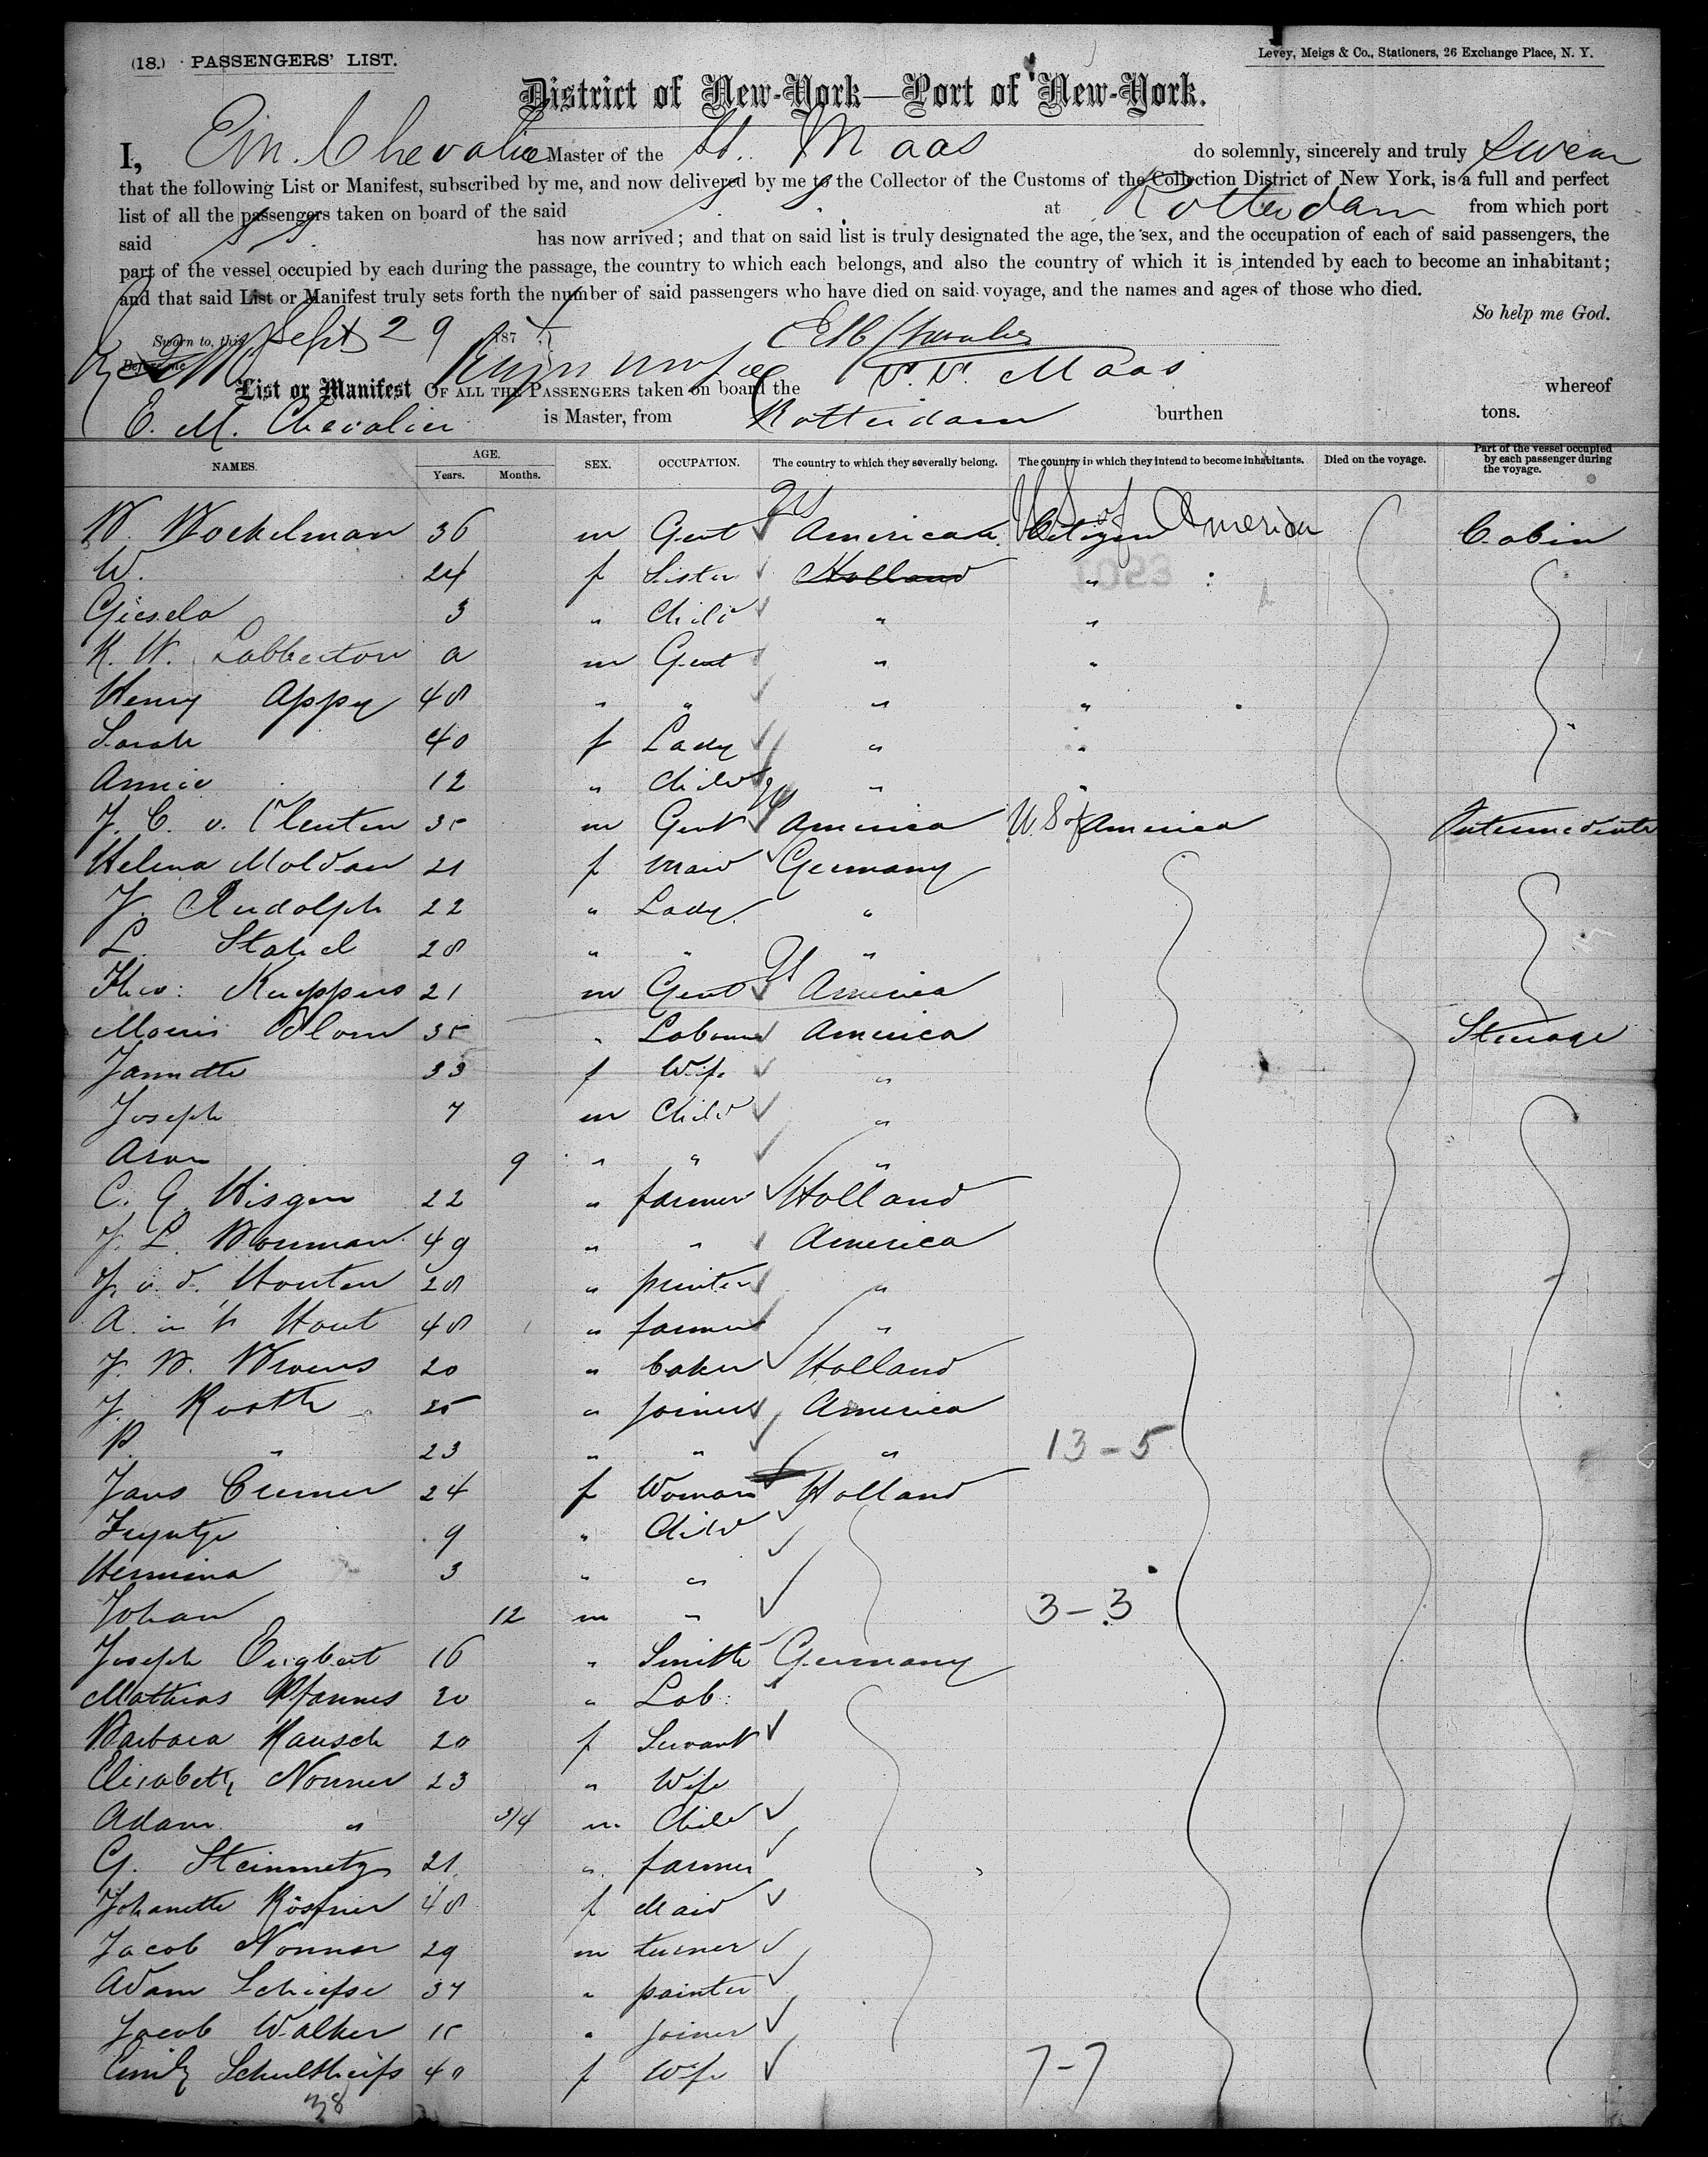 (18.) PASSENGERS' LIST.
Levey, Meigs & Co., Stationers, 26 Exchange Place, N. Y.
District of New-York—Port of New-York.
I, Em. Chevalier Master of the St. Maas do solemnly, sincerely and truly swear
that the following List or Manifest, subscribed by me, and now delivered by me to the Collector of the Customs of the Collection District of New York, is a full and perfect
list of all the passengers taken on board of the said at Rotterdam from which port
said has now arrived; and that on said list is truly designated the age, the sex, and the occupation of each of said passengers, the
part of the vessel occupied by each during the passage, the country to which each belongs, and also the country of which it is intended by each to become an inhabitant;
and that said List or Manifest truly sets forth the number of said passengers who have died on said voyage, and the names and ages of those who died.
So help me God.
Sworn to, this Sept 29 187
Before me
List or Manifest OF ALL THE PASSENGERS taken on board the S. S. Maas whereof
E. M. Chevalier is Master, from Rotterdam burthen tons.
NAMES. AGE. Years. Months. SEX. OCCUPATION. The country to which they severally belong. The country in which they intend to become inhabitants. Died on the voyage. Part of the vessel occupied by each passenger during the voyage.
W. Bockelman 36 m Gent American U S of America Cabin
W. 24 f Sister Holland "
Giesela 3 " Child " "
R. W. Labberton a m Gent " "
Henry Appy 48 " " " "
Sarah 40 f Lady " "
Annie 12 " Child " "
J. C. v. Cleuten 35 m Gent America U. S of America Intermediate
Helena Moldan 21 f Maid Germany
J. Rudolph 22 " Lady "
L. Stahel 28 " " "
Theo: Kuppers 21 m Gent America
Morris Blom 35 " Labourer America Steerage
Jannette 33 f Wife "
Joseph 7 m Child "
Aron 9 " " "
C. G. Hisgen 22 " farmer Holland
J. L. Bouman 49 " " America
J. v. d. Houten 28 " printer "
A. in 't Hout 48 " farmer "
J. B. Broens 20 " baker Holland
J. Rooth 25 " joiner America
P. " 23 " " " 13-5
Jans Cremer 24 f Woman Holland
Fryntje 9 " Child
Hermina 3 " "
Johan 12 m " 3-3
Joseph Engbert 16 " Smith Germany
Mathias Pfannes 30 " Lab:
Barbara Hausch 20 f Servant
Elisabeth Nonner 23 " Wife
Adam " 3/4 m Child
G. Steinmetz 21 " farmer
Johanette Rösner 48 f Maid
Jacob Nonner 29 m turner
Adam Schiefse 37 " painter
Jacob Walker 15 " joiner
Emily Schultheifs 40 f Wife 7-7
38